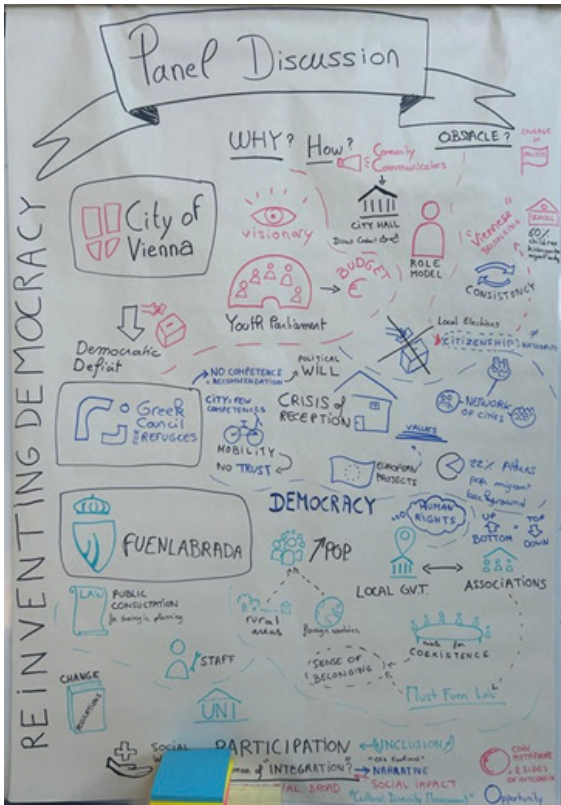 Panel Discussion
REINVENTING DEMOCRACY
WHY?
How?
OBSTACLE?
Comunity
Communicators
ENGAGE
IN
City of
Vienna
visionary
CITY HALL
Direct
ROLE
MODEL
"Viennese"
BELONGING
SCHOOL
60%
children
CONSISTENCY
Youth Parliament
BUDGET
€
Democratic
Deficit
Local Elections
CITIZENSHIP
≠
NATIONALITY
Greek
Council
FOR THE
REFUGEES
NO COMPETENCE
RECOMMENDATION
POLITICAL
WILL
CITY: FEW
COMPETENCES
MOBILITY
NO TRUST
CRISIS of
RECEPTION
VALUES
NETWORK
OF CITIES
EUROPEAN
PROJECTS
22% Athens
pop migrant
background
DEMOCRACY
HUMAN
RIGHTS
UP
BOTTOM
TOP
DOWN
FUENLABRADA
POP.
LOCAL GVT.
ASSOCIATIONS
LAW
PUBLIC
CONSULTATION
for strategic planning
rural
areas
foreign countries
COEXISTENCE
STAFF
SENSE OF
BELONGING
Must Fuen Lab
CHANGE
REGULATIONS
UNI
SOCIAL
W
PARTICIPATION
INCLUSION
"INTEGRATION"?
NARRATIVE
BROAD
SOCIAL IMPACT
"Cultural Diversity Management"
COIN
METAPHORE
2 SIDES
OF INTEGRATION
Opportunity